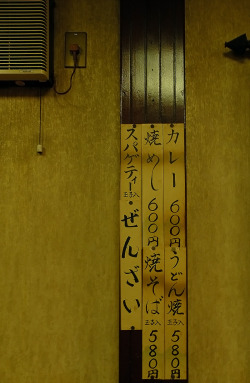 カレー 600円 うどん焼 玉子入 580円
焼めし 600円 焼そば 玉子入 580円
スパゲティー 玉子入 ぜんざい